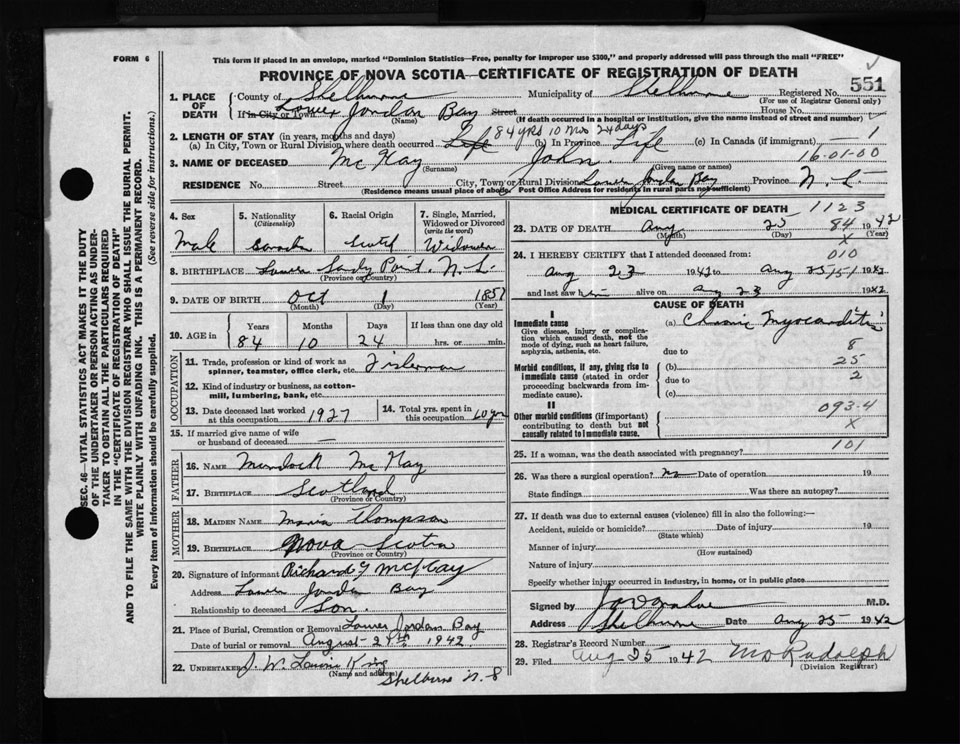 FORM 6
This form if placed in an envelope, marked "Dominion Statistics—Free, penalty for improper use $300," and properly addressed will pass through the mail "FREE"
PROVINCE OF NOVA SCOTIA—CERTIFICATE OF REGISTRATION OF DEATH
551
1. PLACE OF DEATH County of Shelburne Municipality of Shelburne Registered No.
(For use of Registrar General only)
If in City or Town Lower Jordan Bay Street House No.
(Name) (If death occurred in a hospital or institution, give the name instead of street and number)
2. LENGTH OF STAY (in years, months and days) 84 yrs 10 mo 24 days
(a) In City, Town or Rural Division where death occurred Life (b) In Province Life (c) In Canada (if immigrant) 1
16-01-00
3. NAME OF DECEASED McKay John
(Surname) (Given name or names)
RESIDENCE No. Street City, Town or Rural Division Lower Jordan Bay Province N.S.
(Residence means usual place of abode. Post Office Address for residents in rural parts not sufficient)
4. Sex
Male
5. Nationality
(Citizenship)
Canadian
6. Racial Origin
Scotch
7. Single, Married, Widowed or Divorced
(write the word)
Widower
8. BIRTHPLACE Lower Sandy Point, N.S.
(Province or Country)
9. DATE OF BIRTH Oct 1 1857
(Month) (Day) (Year)
10. AGE in Years Months Days If less than one day old
84 10 24 hrs. or min.
OCCUPATION
11. Trade, profession or kind of work as spinner, teamster, office clerk, etc. Fisherman
12. Kind of industry or business, as cotton-mill, lumbering, bank, etc.
13. Date deceased last worked at this occupation 1927
14. Total yrs. spent in this occupation 60 yrs
15. If married give name of wife or husband of deceased —
FATHER
16. NAME Murdock McKay
17. BIRTHPLACE Scotland
(Province or Country)
MOTHER
18. MAIDEN NAME Maria Thompson
19. BIRTHPLACE Nova Scotia
(Province or Country)
20. Signature of informant Richard McKay
Address Lower Jordan Bay
Relationship to deceased Son.
21. Place of Burial, Cremation or Removal Lower Jordan Bay
Date of burial or removal August 1942
22. UNDERTAKER J. W. King
(Name and address)
Shelburne N.S
MEDICAL CERTIFICATE OF DEATH 1123
23. DATE OF DEATH Aug 25 84 1942
(Month) (Day) X (Year)
24. I HEREBY CERTIFY that I attended deceased from: 010
Aug 23 1942 to Aug 25 151 1942
and last saw him alive on Aug 23 1942
CAUSE OF DEATH
I
Immediate cause
Give disease, injury or complication which caused death, not the mode of dying, such as heart failure, asphyxia, asthenia, etc.
(a) Chronic Myocarditis
8
due to
Morbid conditions, if any, giving rise to immediate cause (stated in order proceeding backwards from immediate cause).
(b) 25
due to 2
(c)
II
Other morbid conditions (if important) contributing to death but not causally related to immediate cause.
093-4
X
25. If a woman, was the death associated with pregnancy? 101
26. Was there a surgical operation? no Date of operation 19
State findings Was there an autopsy?
27. If death was due to external causes (violence) fill in also the following:—
Accident, suicide or homicide? Date of injury 19
(State which)
Manner of injury
(How sustained)
Nature of injury
Specify whether injury occurred in industry, in home, or in public place
Signed by M.D.
Address Shelburne Date Aug 25 1942
28. Registrar's Record Number
29. Filed Aug 25 1942 Rudolph
(Division Registrar)
SEC. 46—VITAL STATISTICS ACT MAKES IT THE DUTY
OF THE UNDERTAKER OR PERSON ACTING AS UNDER-
TAKER TO OBTAIN ALL THE PARTICULARS REQUIRED
IN THE "CERTIFICATE OF REGISTRATION OF DEATH"
AND TO FILE THE SAME WITH THE DIVISION REGISTRAR WHO SHALL ISSUE THE BURIAL PERMIT.
WRITE PLAINLY WITH UNFADING INK. THIS IS A PERMANENT RECORD.
Every item of information should be carefully supplied. (See reverse side for instructions.)